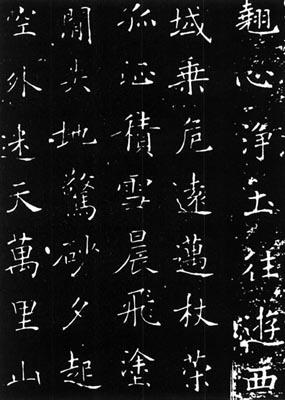 翹心淨土往遊西
域乘危遠邁杖策
孤征積雪晨飛塗
間失地驚砂夕起
空外迷天萬里山